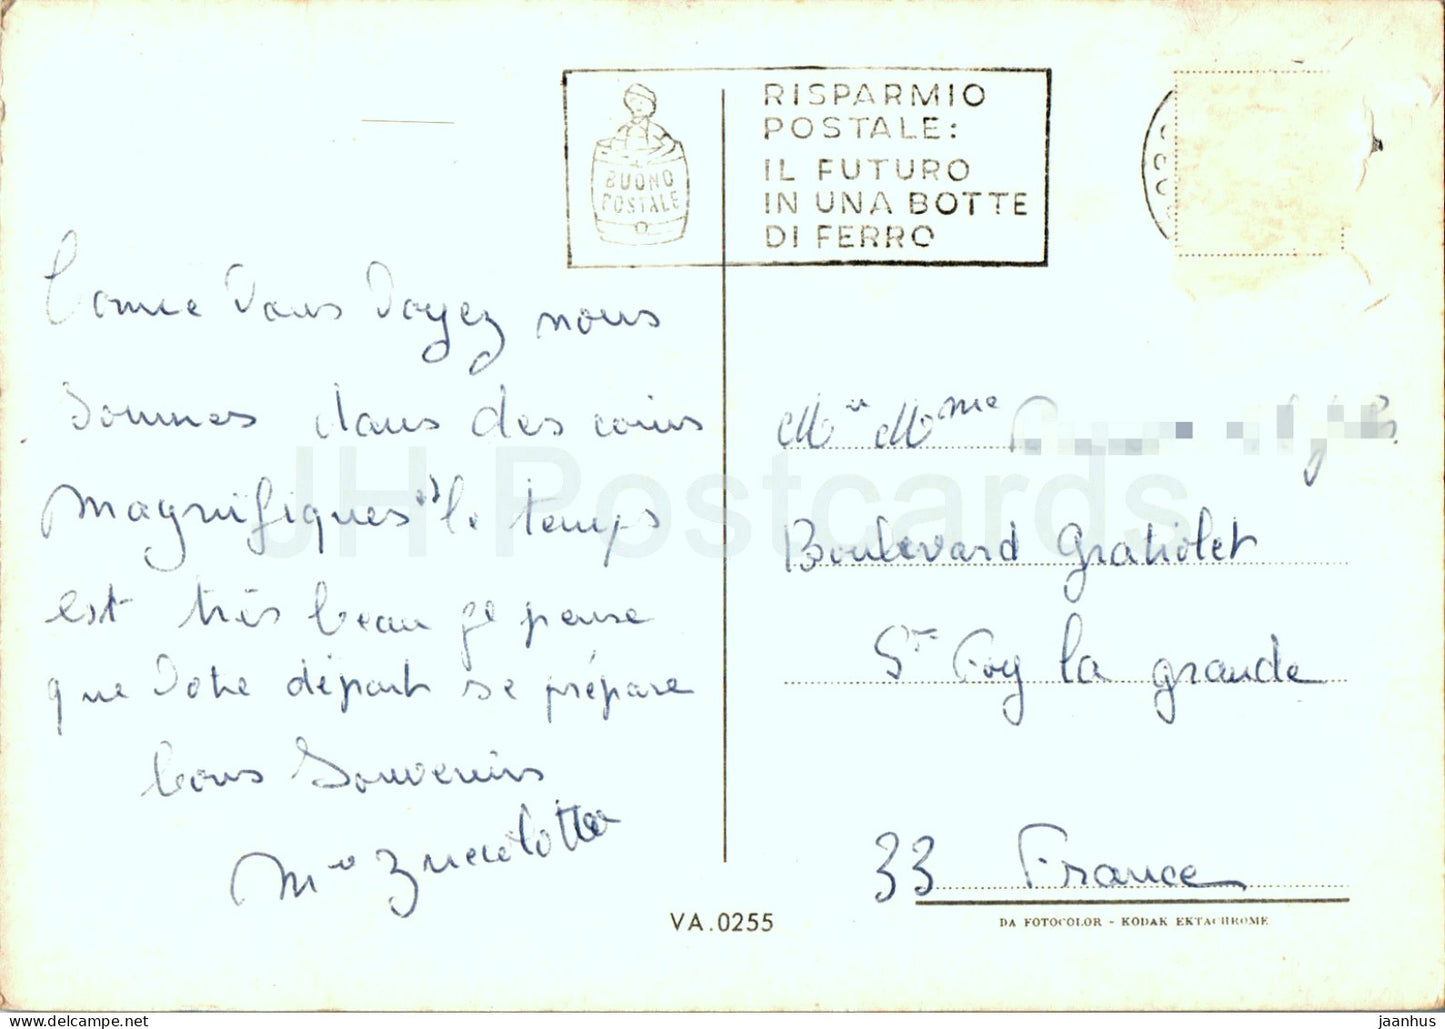 RISPARMIO
POSTALE:
IL FUTURO
IN UNA BOTTE
DI FERRO
BUONO
POSTALE
Comme Vous Voyez nous
sommes dans des coins
magnifiques et le temps
est très beau je pense
que Votre départ se prépare
bons Souvenirs
Mr et Mme
Boulevard Gratiolet
Ste Foy la grande
33 France
VA.0255
DA FOTOCOLOR - KODAK EKTACHROME
JH Postcards
jaanhus - delcampe.net